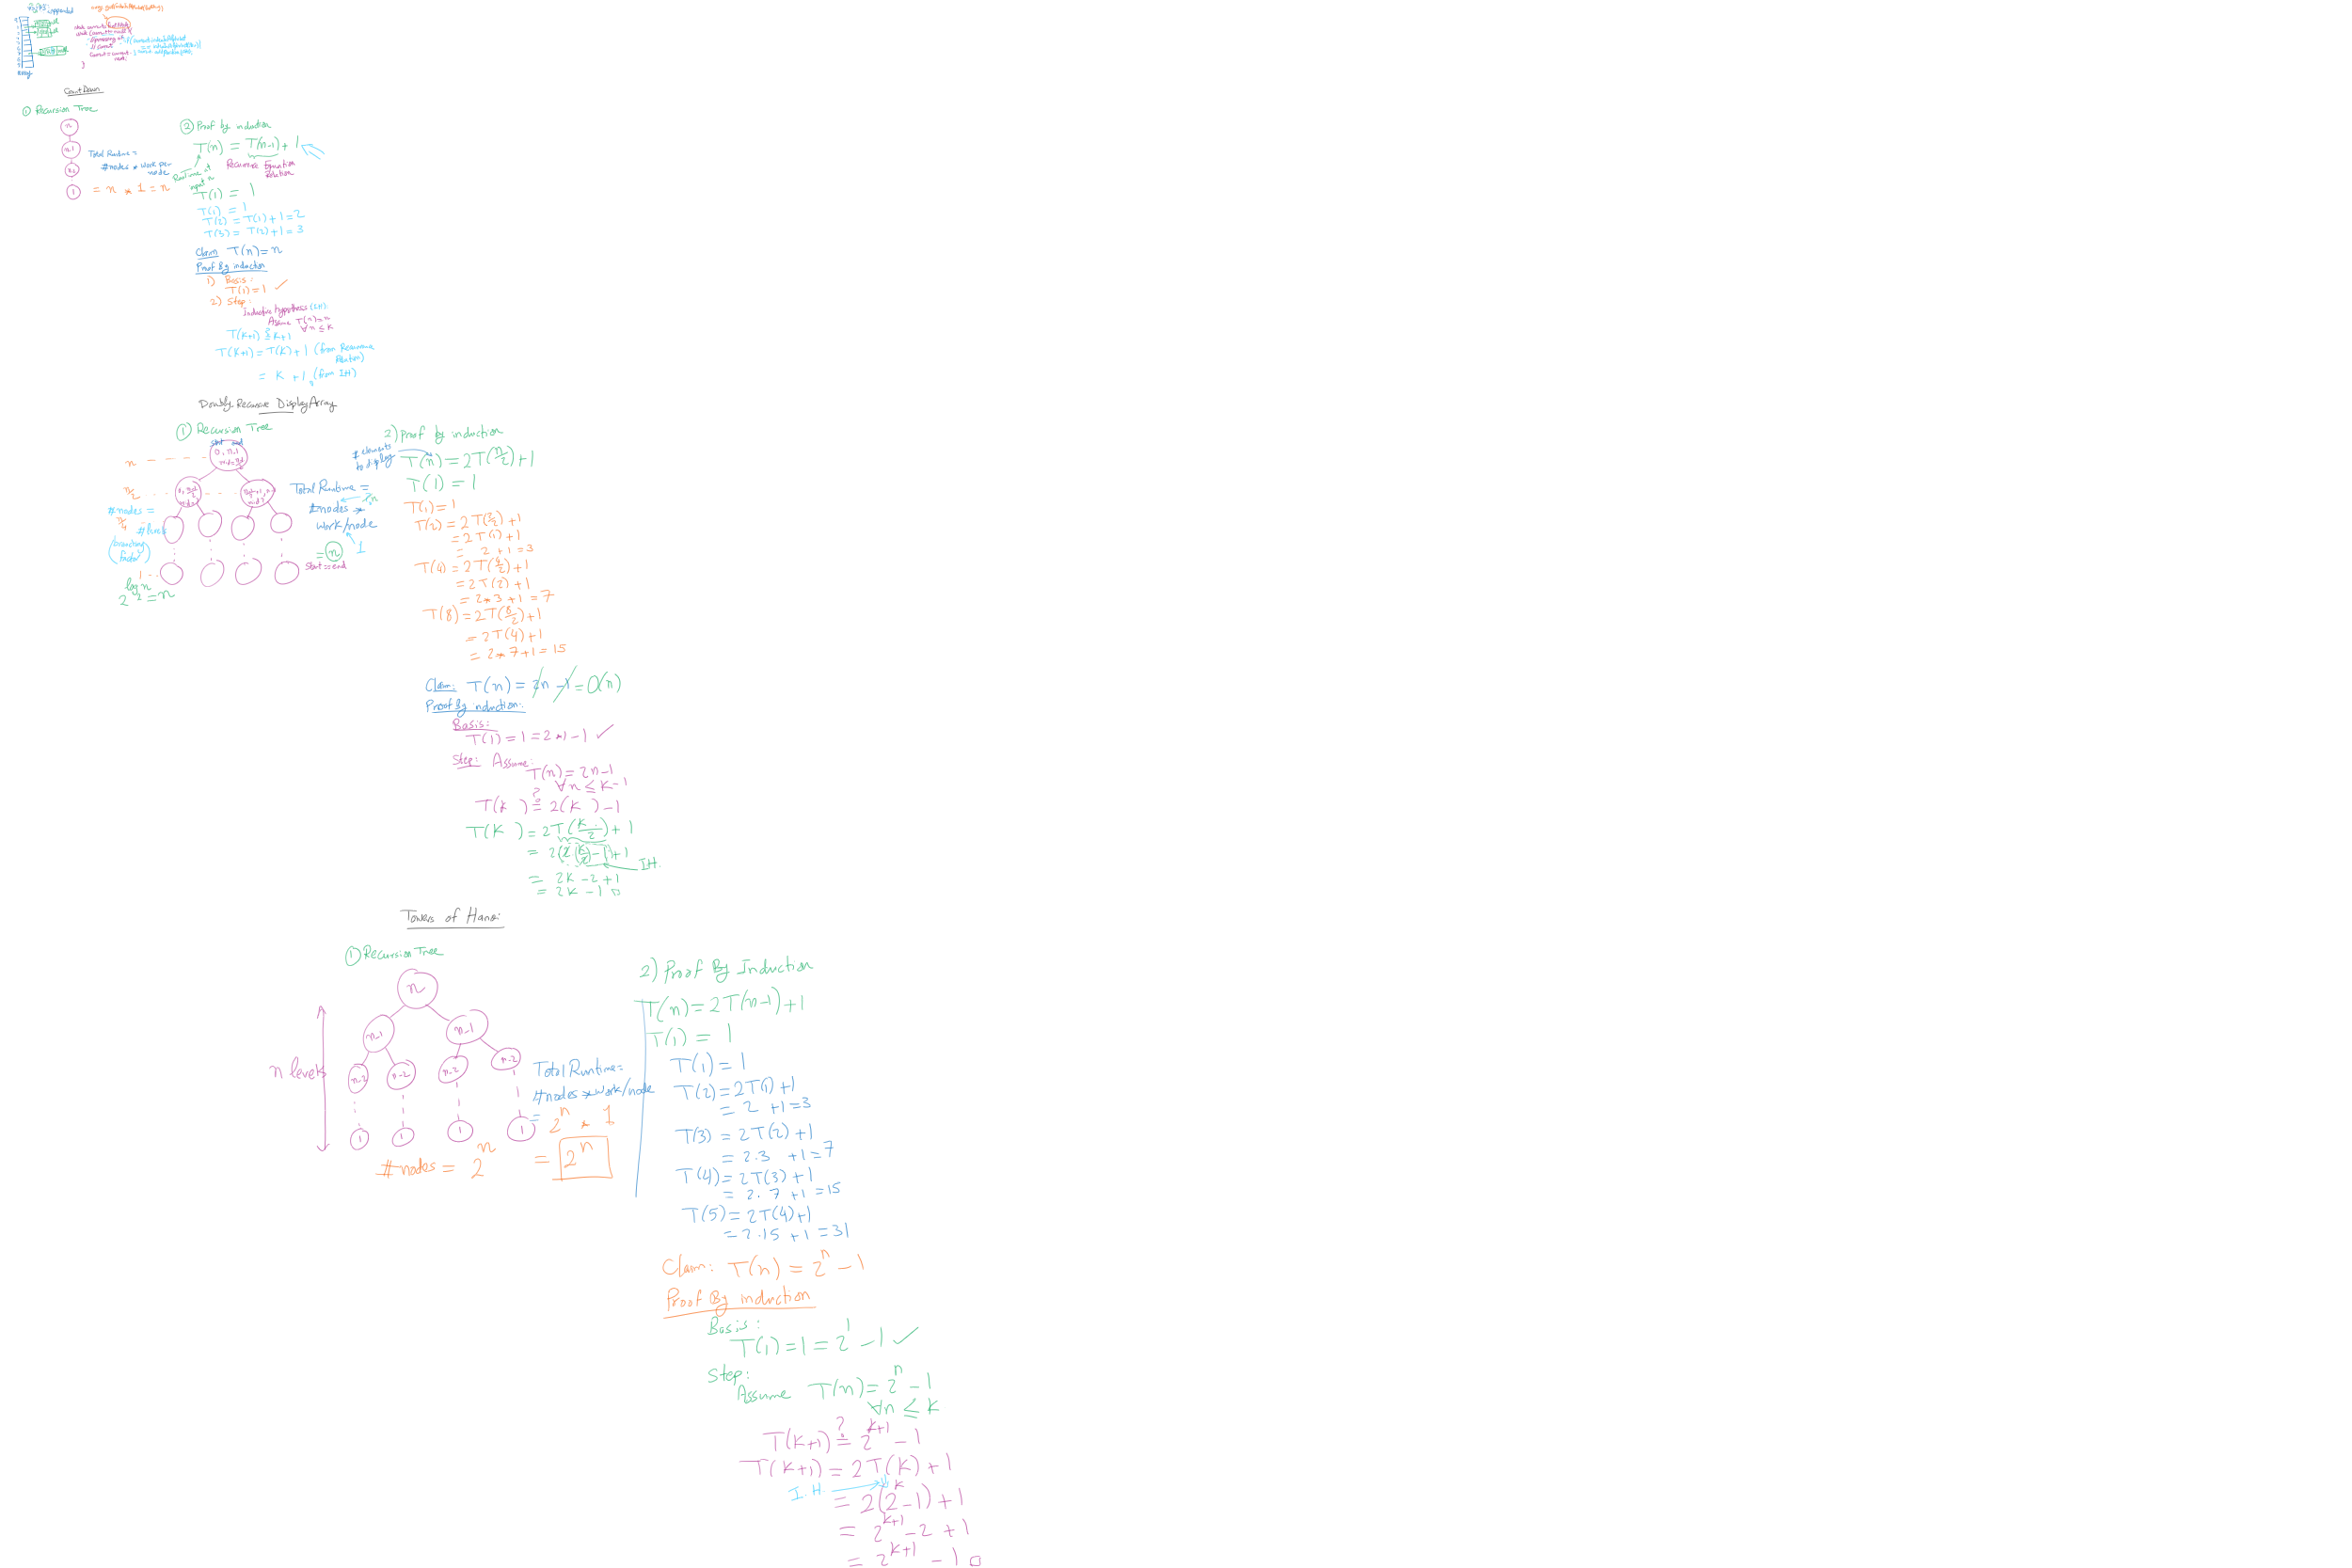 Array
CountDown
① Recursion Tree
n
n-1
n-2
1
Total Runtime =
#nodes * work per
node
= n * 1 = n
② Proof by induction
T(n) = T(n-1) + 1
Recurrence Equation
Relation
Runtime at
input n
T(1) = 1
T(1) = 1
T(2) = T(1) + 1 = 2
T(3) = T(2) + 1 = 3
Claim T(n) = n
Proof By induction
1) Basis:
T(1) = 1 ✓
2) Step:
Inductive hypothesis (I.H):
Assume T(n) = n
∀n ≤ k
T(k+1) ≟ k+1
T(k+1) = T(k) + 1 (from Recurrence
Relation)
= k + 1 (from IH)
Doubly Recursive DisplayArray
① Recursion Tree
start end
0, n-1
n
n/2
#nodes =
n/4
#levels
(branching
factor)
1
log n
2 2 = n
Total Runtime =
#nodes *
work/node
1
= n
start == end
2) Proof by induction
# elements
to display
T(n) = 2T(n/2) + 1
T(1) = 1
T(1) = 1
T(2) = 2T(2/2) + 1
= 2T(1) + 1
= 2 + 1 = 3
T(4) = 2T(4/2) + 1
= 2T(2) + 1
= 2*3 + 1 = 7
T(8) = 2T(8/2) + 1
= 2T(4) + 1
= 2*7 + 1 = 15
Claim: T(n) = 2n - 1 = O(n)
Proof By induction:
Basis:
T(1) = 1 = 2*1 - 1 ✓
Step: Assume:
T(n) = 2n - 1
∀n ≤ k-1
T(k ) ≟ 2(k ) - 1
T(k ) = 2T(k/2) + 1
= 2(2(k/2) - 1) + 1
I.H.
= 2k - 2 + 1
= 2k - 1 □
Towers of Hanoi
① Recursion Tree
n
n-1 n-1
n-2 n-2 n-2 n-2
n levels
1 1 1 1
#nodes = 2^n
Total Runtime =
#nodes * work/node
= 2^n * 1
= 2^n
2) Proof By Induction
T(n) = 2T(n-1) + 1
T(1) = 1
T(1) = 1
T(2) = 2T(1) + 1
= 2 + 1 = 3
T(3) = 2T(2) + 1
= 2.3 + 1 = 7
T(4) = 2T(3) + 1
= 2.7 + 1 = 15
T(5) = 2T(4) + 1
= 2.15 + 1 = 31
Claim: T(n) = 2^n - 1
Proof By induction
Basis:
T(1) = 1 = 2^1 - 1 ✓
Step:
Assume T(n) = 2^n - 1
∀n ≤ k
T(k+1) ≟ 2^(k+1) - 1
T(k+1) = 2T(k) + 1
I.H.
= 2(2^k - 1) + 1
= 2^(k+1) - 2 + 1
= 2^(k+1) - 1 □